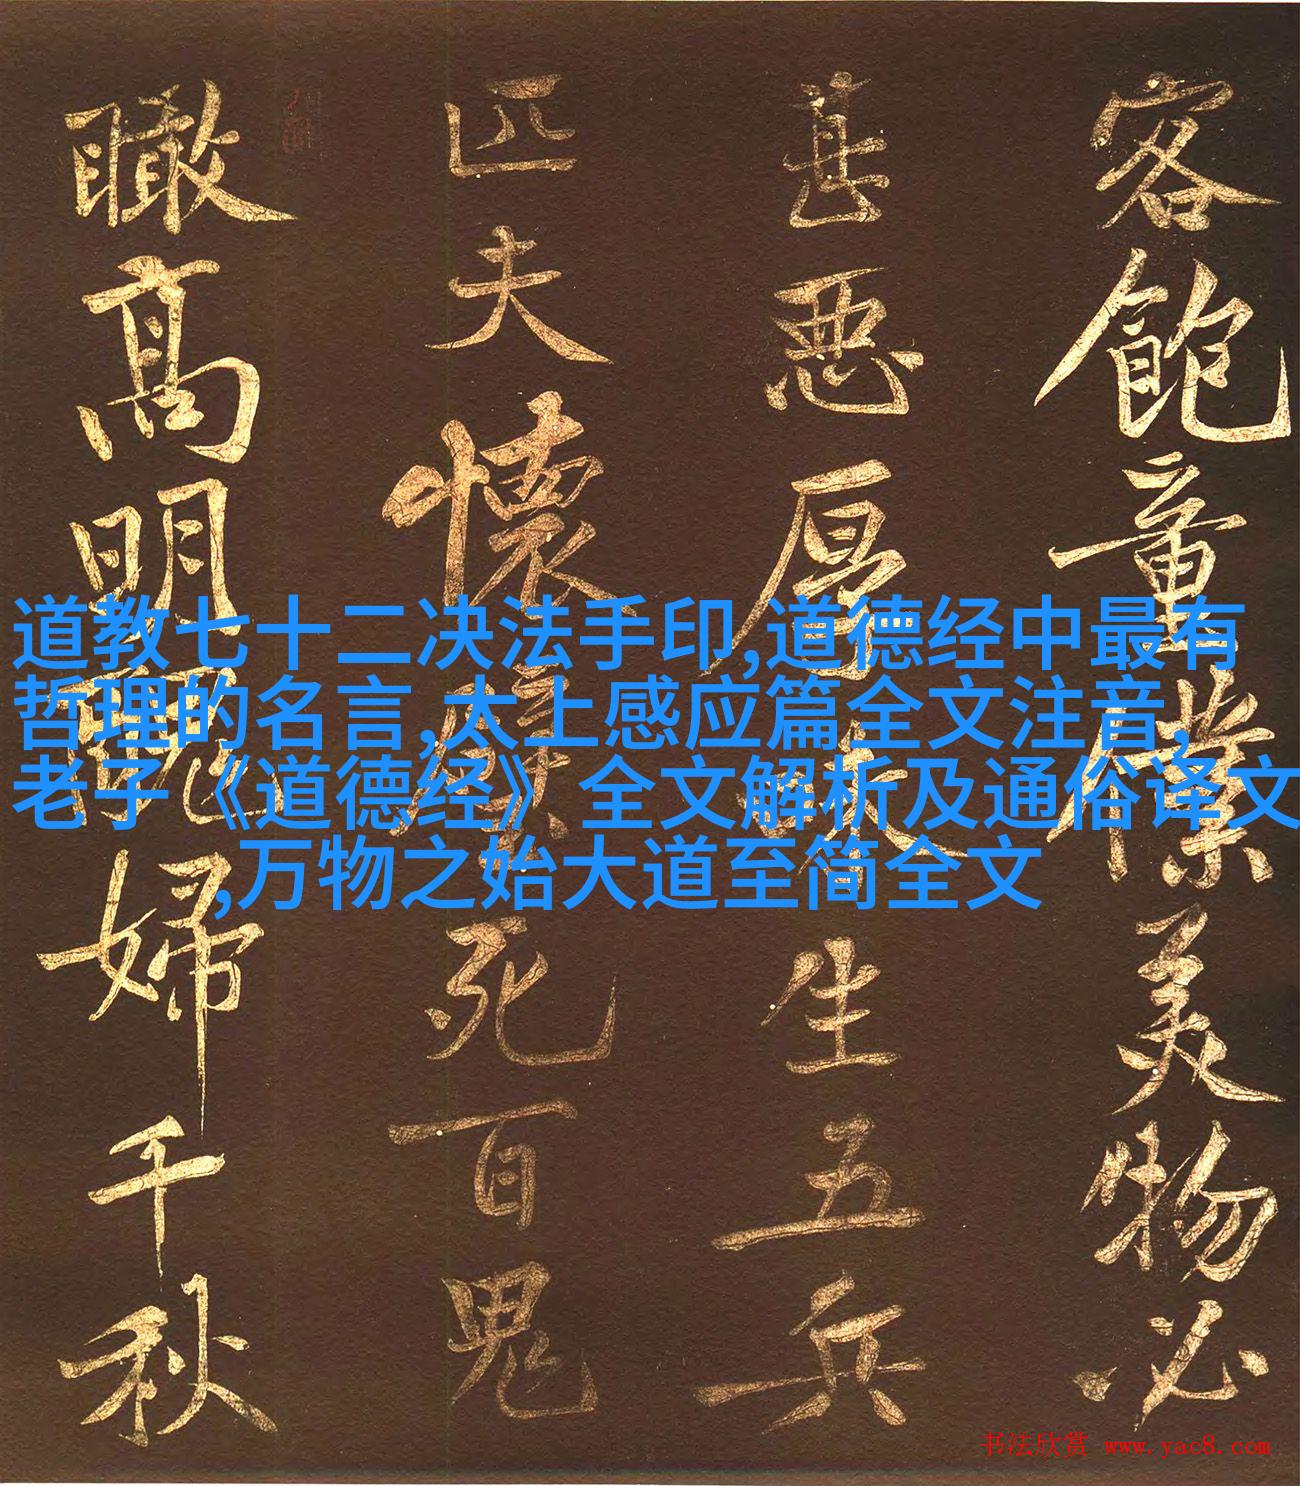 客飽童僕美物必
甚惡厚味生五兵
匹夫懷璧死百鬼
瞰高明醜婦千秋
道教七十二决法手印,道德经中最有
哲理的名言,太上感应篇全文注音,
老子《道德经》全文解析及通俗译文
,万物之始大道至简全文
书法欣赏 www.yac8.com